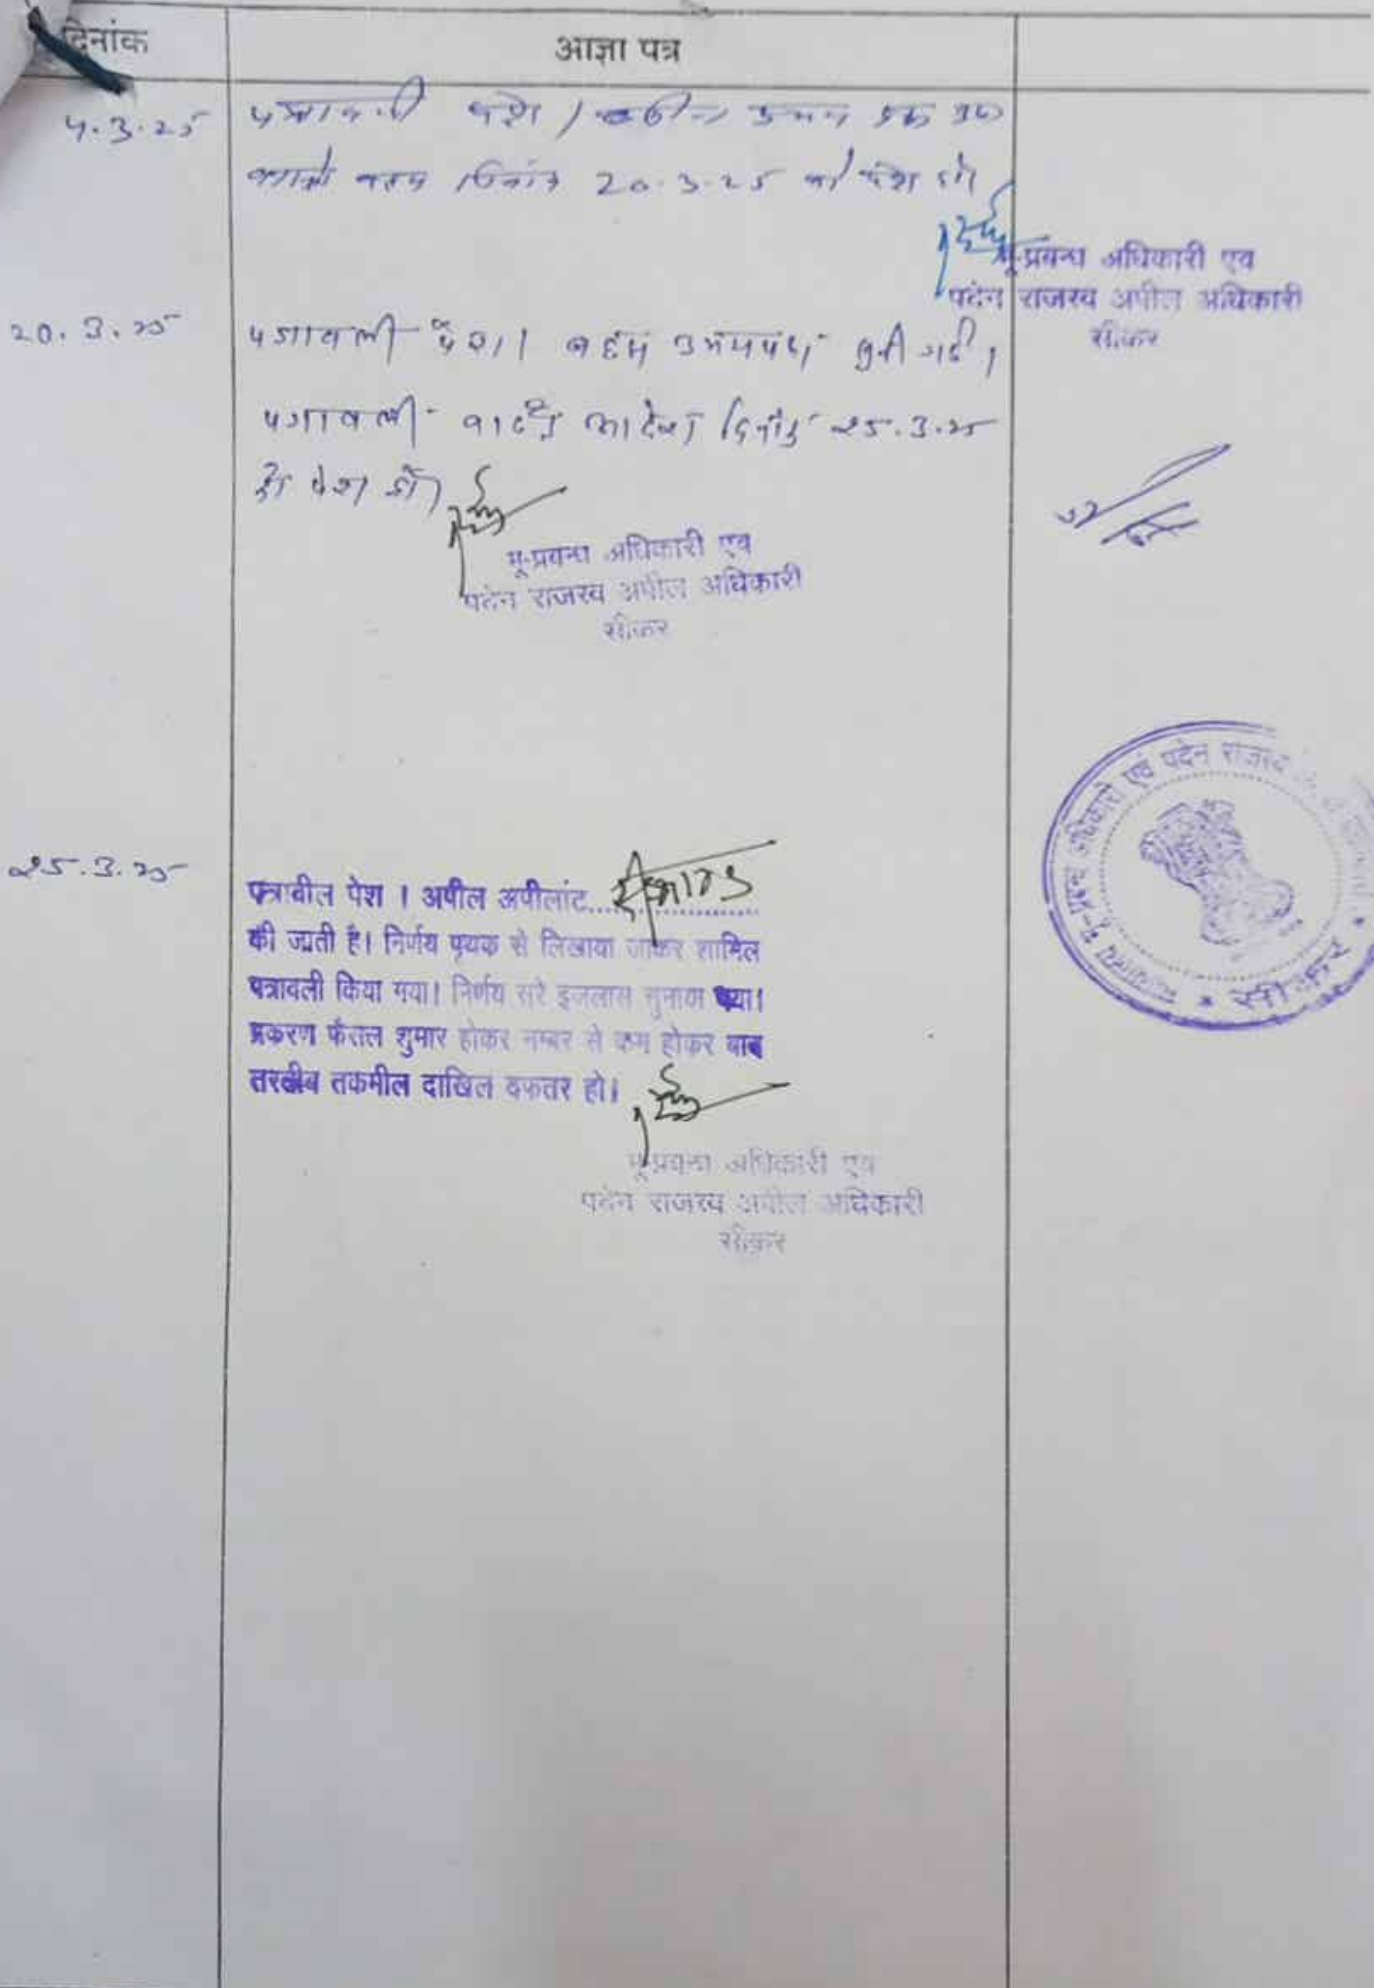 दिनांक
आज्ञा पत्र
4.3.25
पत्रावली पेश।
बहस दिनांक 20.3.25 को पेश हो
भू-प्रबन्ध अधिकारी एव
पदेन राजस्व अपील अधिकारी
सीकर
20.3.25
पत्रावली पेश। बहस उभयपक्ष सुनी गई।
पत्रावली वास्ते आदेश दिनांक 25.3.25
को पेश हो।
भू-प्रबन्ध अधिकारी एव
पदेन राजस्व अपील अधिकारी
सीकर
न्यायालय भू-प्रबन्ध अधिकारी एवं पदेन राजस्व
* सीकर *
25.3.25
पत्रावील पेश । अपील अपीलांट..............
की जाती है। निर्णय पृथक से लिखाया जाकर शामिल
पत्रावली किया गया। निर्णय सरे इजलास सुनाया गया।
प्रकरण फैसल शुमार होकर नम्बर से कम होकर बाद
तरतीब तकमील दाखिल दफतर हो।
भू-प्रबन्ध अधिकारी एव
पदेन राजस्व अपील अधिकारी
सीकर